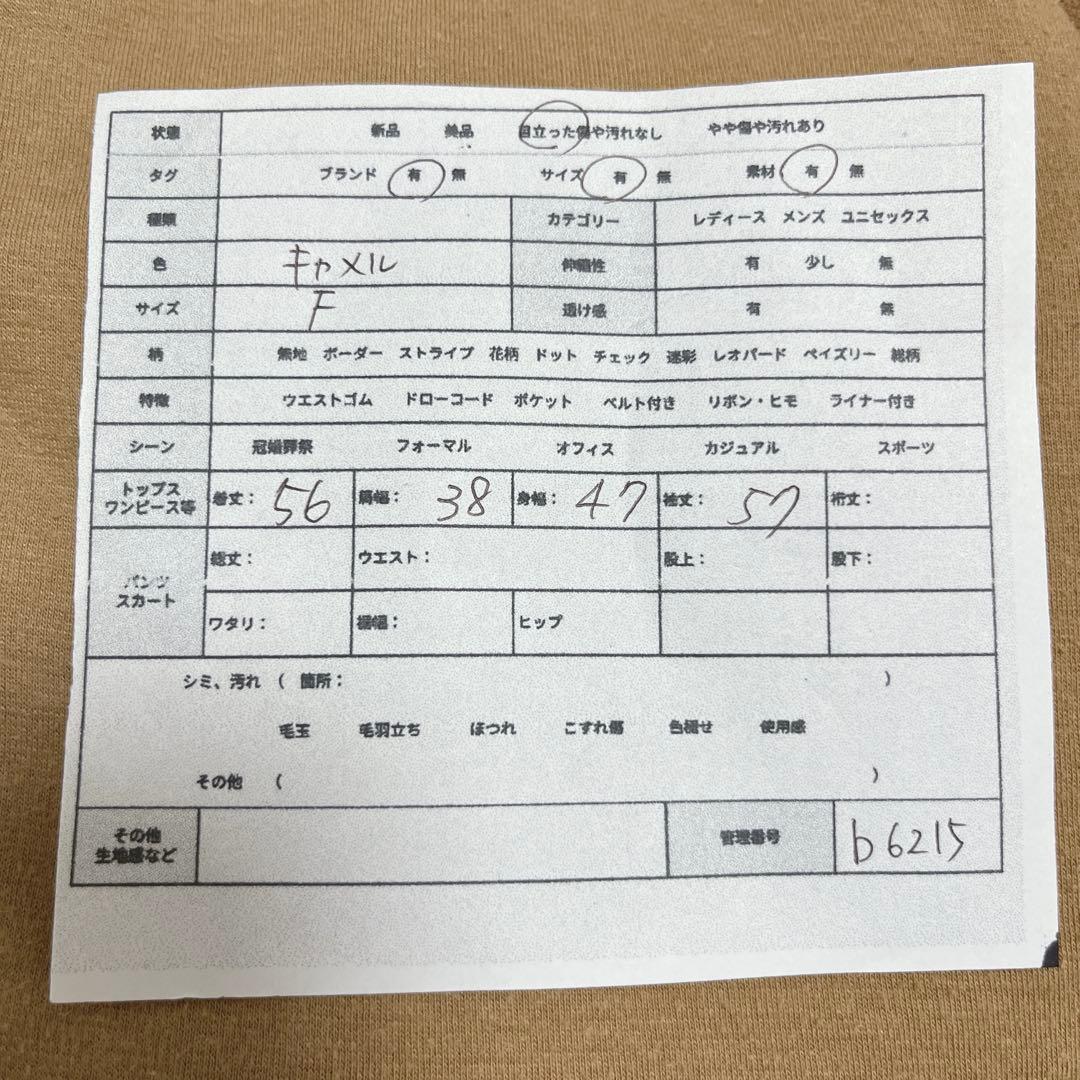 状態 新品 美品 目立った傷や汚れなし やや傷や汚れあり
タグ ブランド 有 無 サイズ 有 無 素材 有 無
種類 カテゴリー レディース メンズ ユニセックス
色 キャメル 伸縮性 有 少し 無
サイズ F 透け感 有 無
柄 無地 ボーダー ストライプ 花柄 ドット チェック 迷彩 レオパード ペイズリー 総柄
特徴 ウエストゴム ドローコード ポケット ベルト付き リボン・ヒモ ライナー付き
シーン 冠婚葬祭 フォーマル オフィス カジュアル スポーツ
トップス
ワンピース等 着丈： 56 肩幅： 38 身幅： 47 袖丈： 57 裄丈：
パンツ
スカート 総丈： ウエスト： 股上： 股下：
ワタリ： 裾幅： ヒップ
シミ、汚れ （ 箇所： ）
毛玉 毛羽立ち ほつれ こすれ傷 色褪せ 使用感
その他 （ ）
その他
生地感など 管理番号 b6215